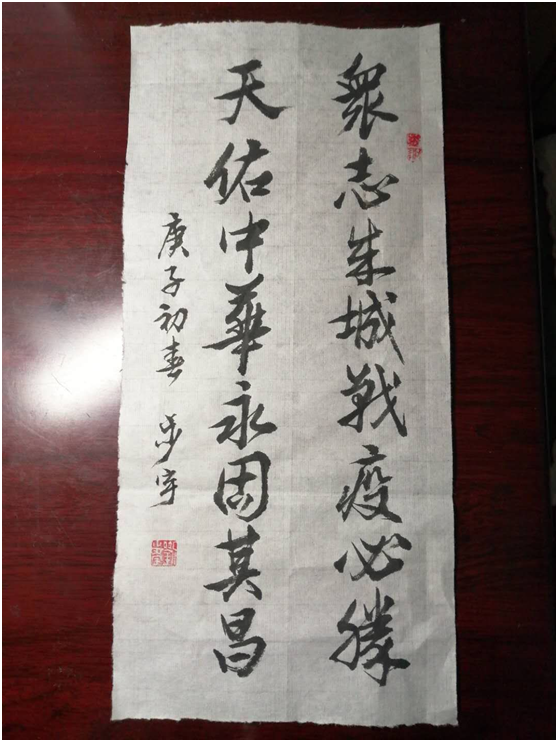 眾志成城戰疫必勝
天佑中華永固其昌
庚子初春 步宇